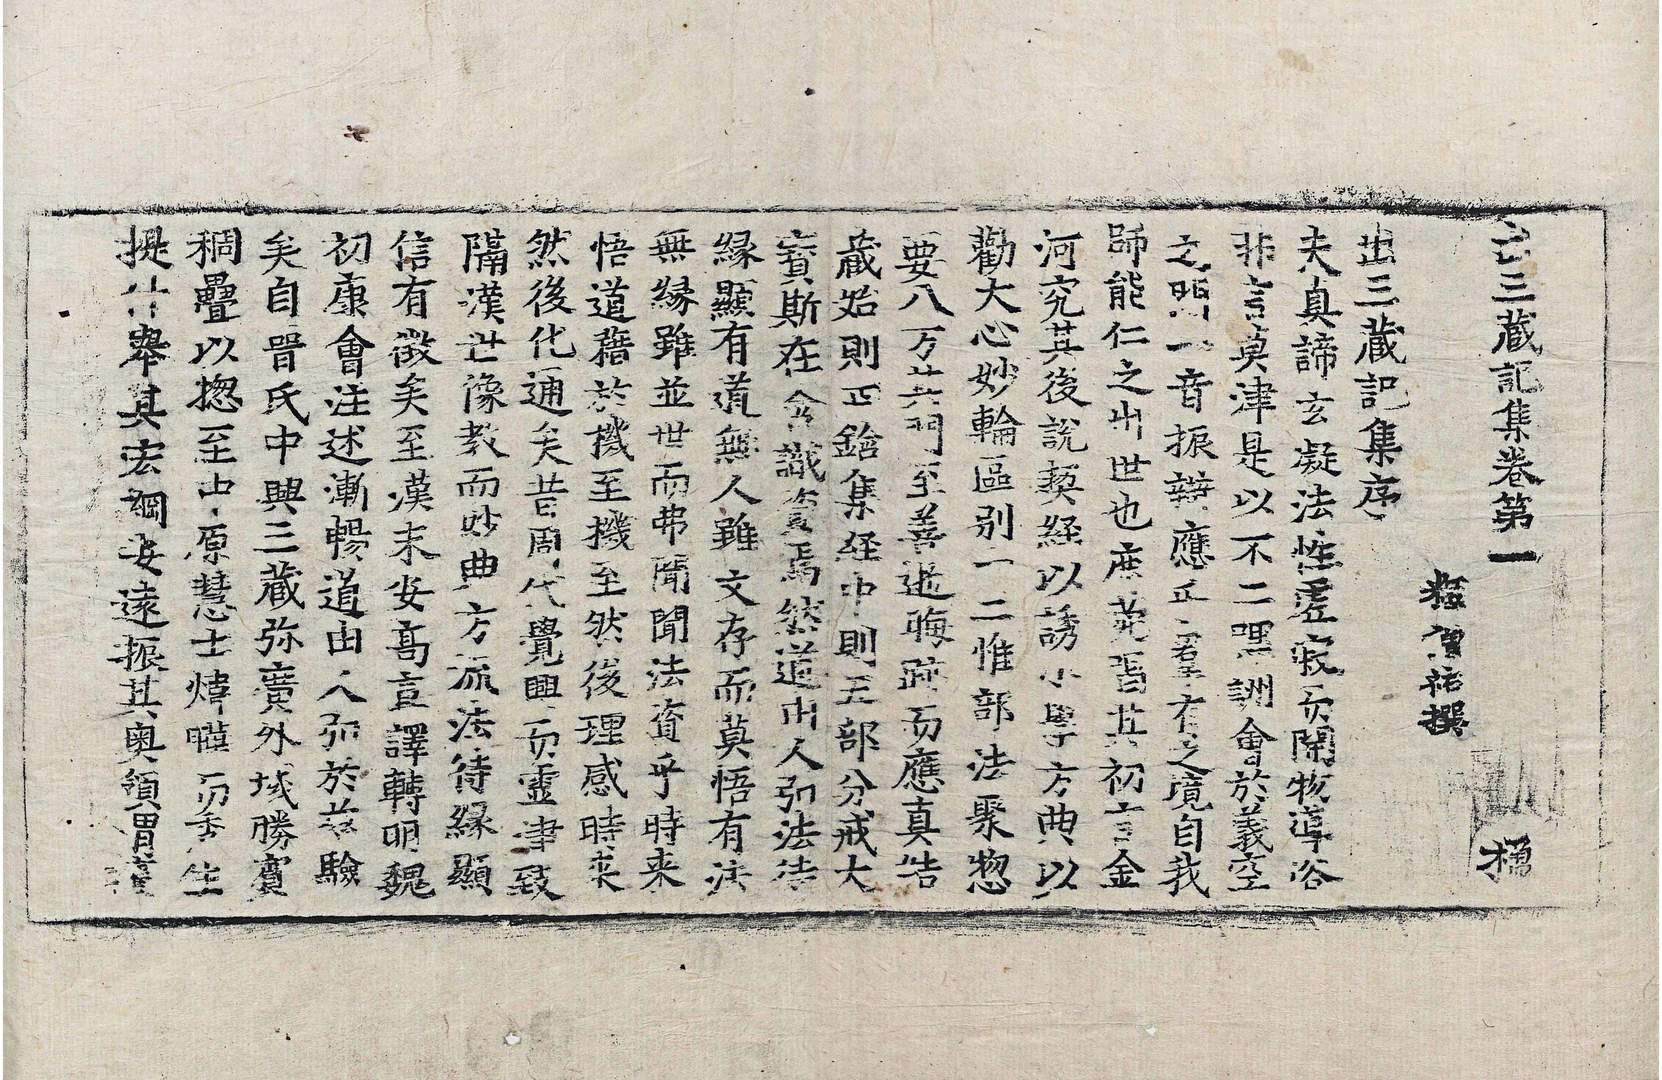 出三藏記集卷第一
楹
釋僧祐撰
出三藏記集序
夫真諦玄凝法性虛寂而開物導俗
非言莫津是以不二嘿詶會於義空
之門一音振辯應乎羣有之境自我
師能仁之出世也鹿苑唱其初言金
河究其後說契経以誘小學方典以
勸大心妙輪區別十二惟部法聚惣
要八万其門至善逝晦跡而應真結
藏始則四鋡集経中則五部分戒大
寳斯在含識資焉然道由人弘法待
緣顯有道無人雖文存而莫悟有法
無緣雖並世而弗聞聞法資乎時来
悟道藉於機至機至然後理感時来
然後化通矣昔周代覺興而靈津致
隔漢世像教而妙典方流法待緣顯
信有徵矣至漢末安高宣譯轉明魏
初康會注述漸暢道由人弘於茲驗
矣自晉氏中興三藏弥廣外域勝賓
稠疊以揔至中原慧士煒曄而秀生
提什舉其宏綱安遠振其奧領渭濱